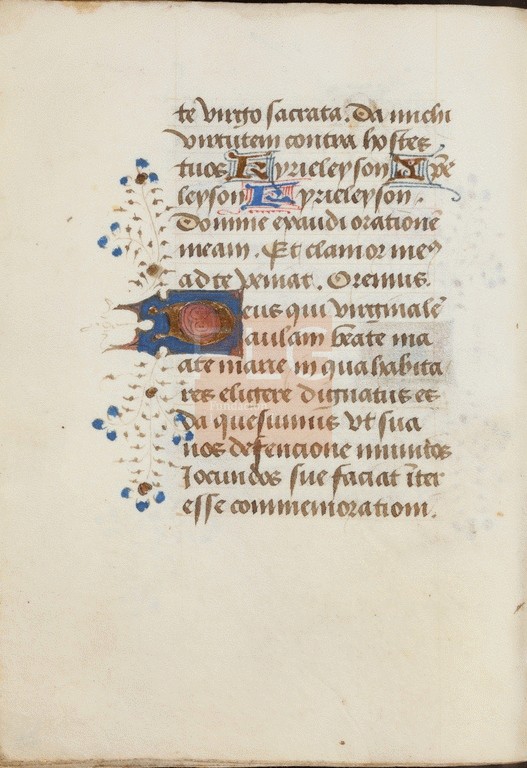 te virgo sacrata. Da michi
virtutem contra hostes
tuos Kyrieleyson Xp̄e
leyson Kyrieleyson.
Domine exaudi orationē
meam. Et clamor meꝰ
ad te veniat. Oremus.
Deus qui virginalē
aulam beate ma
rie marie in qua habita
res eligere dignatus es
da quesumus vt sua
nos defencione munitos
Jocundos sue faciat īter
esse commemorationi.